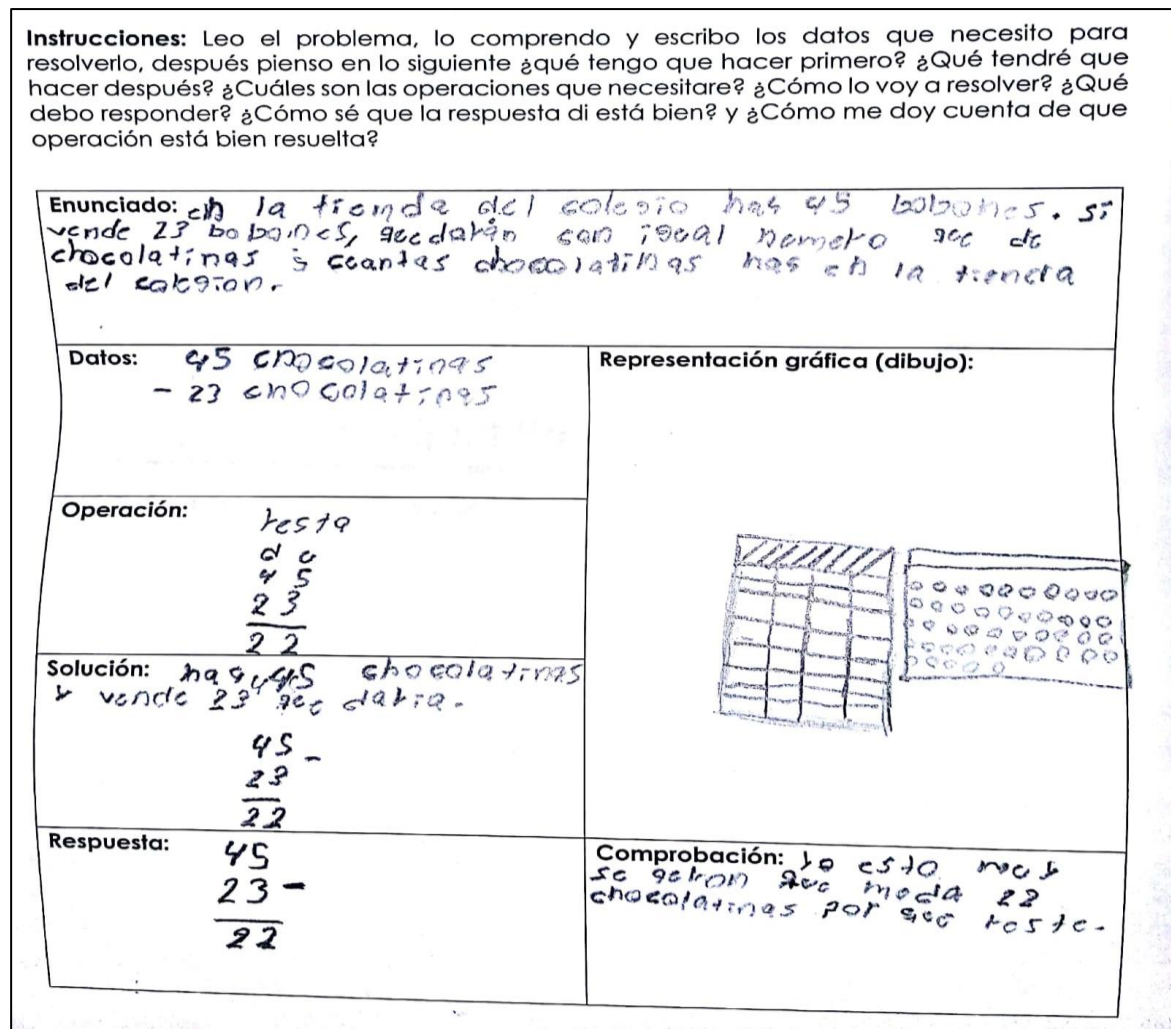 Instrucciones: Leo el problema, lo comprendo y escribo los datos que necesito para
resolverlo, después pienso en lo siguiente ¿qué tengo que hacer primero? ¿Qué tendré que
hacer después? ¿Cuáles son las operaciones que necesitare? ¿Cómo lo voy a resolver? ¿Qué
debo responder? ¿Cómo sé que la respuesta di está bien? y ¿Cómo me doy cuenta de que
operación está bien resuelta?
Enunciado: en la tienda del colegio has 45 bobones. si
vende 23 bobones, quedarán con igual nomero que de
chocolatinas cuantas chocolatinas has en la tienda
del
Datos:
45 chocolatinas
- 23 chocolatinas
Representación gráfica (dibujo):
Operación:
resta
d u
4 5
2 3
2 2
Solución: has 45 chocolatinas
y vende 23 que daria.
45 -
23
22
Respuesta:
45
23 -
22
Comprobación: yo esto
que 22
chocolatinas por que reste.